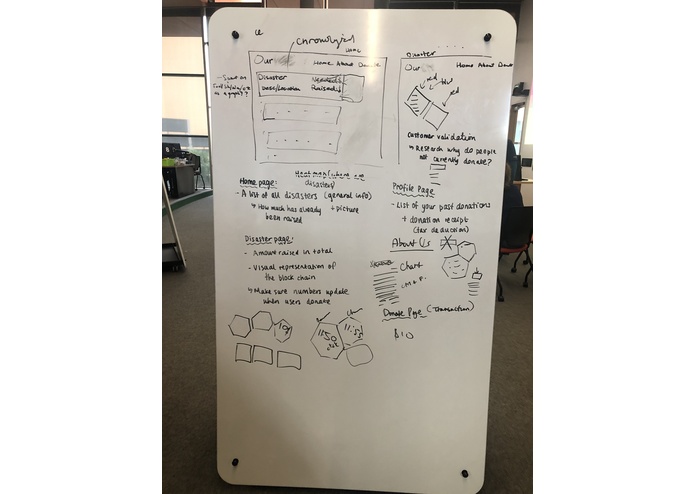 chronological
Home
Our
Home About Donate
Disaster
Needed $
Date/Location Raised $
as a graph??
Disaster
Our
Home About Donate
Customer validation
Research why do people
not currently donate?
Heat map (where are
disasters)
Home page:
- A list of all disasters (general info)
How much has already + picture
been raised
Profile Page
- List of your past donations
+ donation receipt
(tax deduction)
Disaster page:
- Amount raised in total
- Visual representation of
the block chain
Make sure numbers update
when users donate
About Us
Chart
Donate Page (Transaction)
11:50